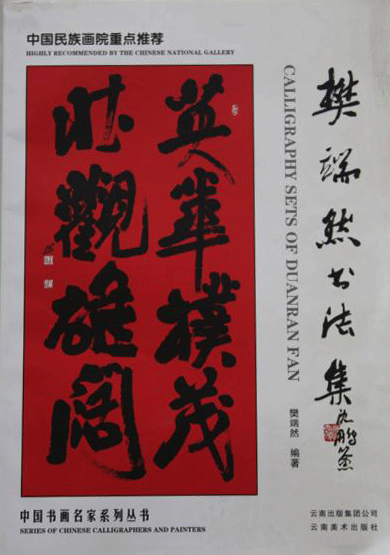 中国民族画院重点推荐
HIGHLY RECOMMENDED BY THE CHINESE NATIONAL GALLERY
英華樸茂
壮觀雄闊
樊端然书法集
沈鹏签
CALLIGRAPHY SETS OF DUANRAN FAN
樊端然 编著
中国书画名家系列丛书
SERIES OF CHINESE CALLIGRAPHERS AND PAINTERS
云南出版集团公司
云南美术出版社